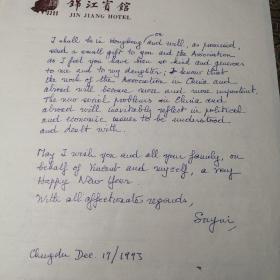 錦江賓館
JIN JIANG HOTEL
I shall be in Hongkong and will, as promised,
send a small gift to you and the Association
as I feel you have been so kind and generous
to me and to my daughter; I know that
the work of the Association in China and
abroad will become more and more important.
The new social problems in China and
abroad will inevitably reflect in political
and economic issues to be understood
and dealt with.
May I wish you and all your family, on
behalf of Vincent and myself, a very
Happy New Year
With all affectionate regards,
Chengdu Dec. 17/1993